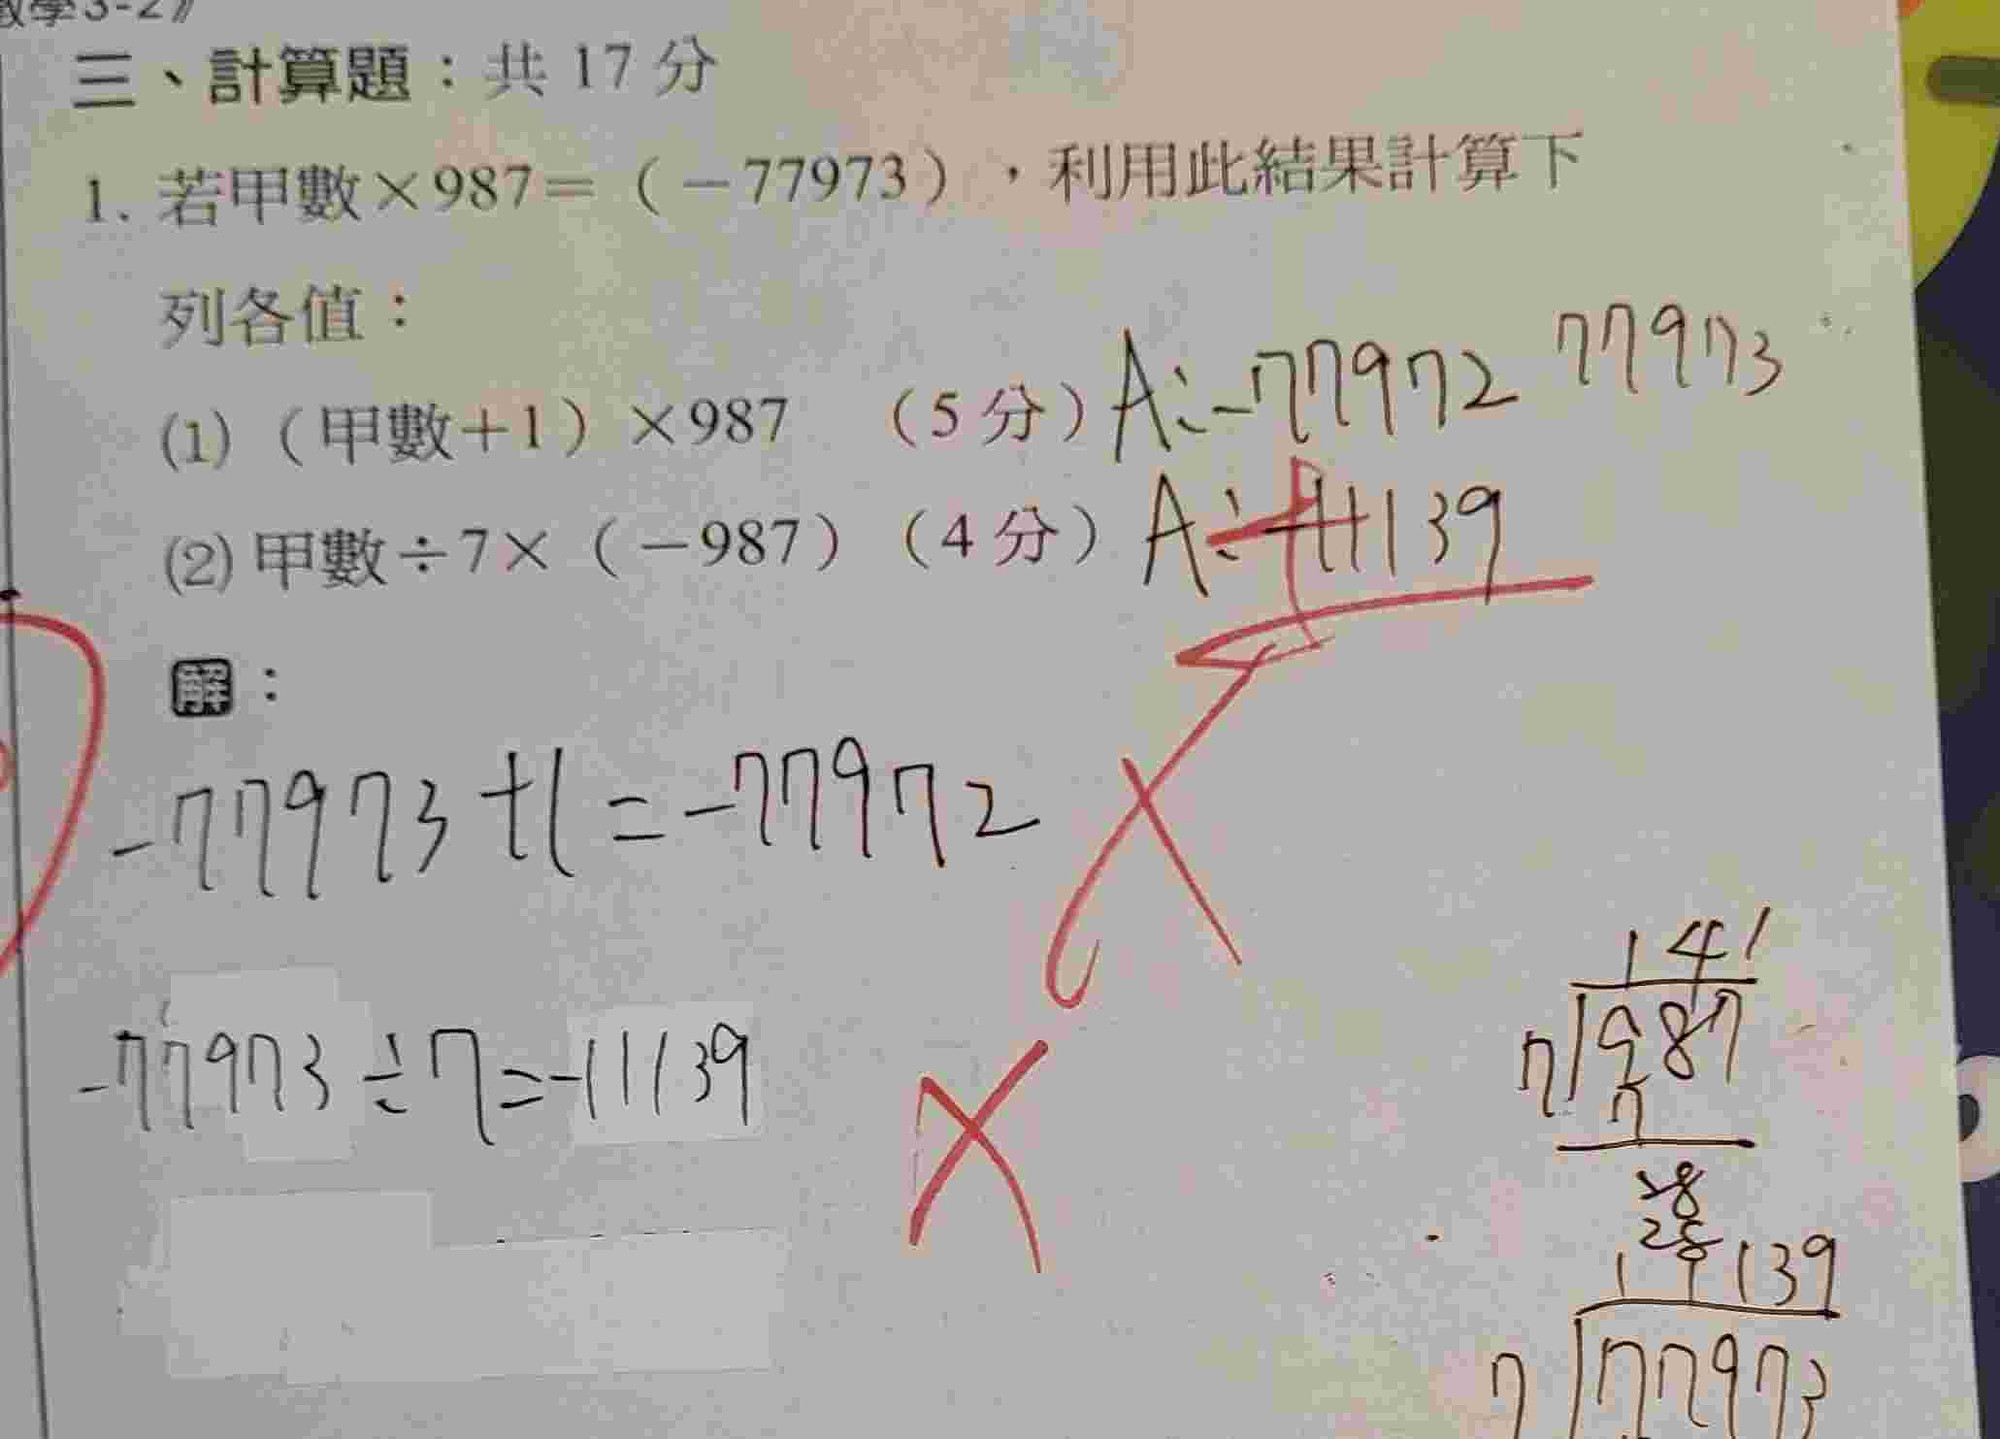 數學3-2》
三、計算題：共 17 分
1. 若甲數×987＝（－77973），利用此結果計算下
列各值：
77973
(1)（甲數＋1）×987 （5 分） A：-77972
(2) 甲數÷7×（－987）（4 分） A：-11139
解：
-77973+1=-77972
-77973÷7=-11139
141
7 987
7
28
28
11139
7 77973